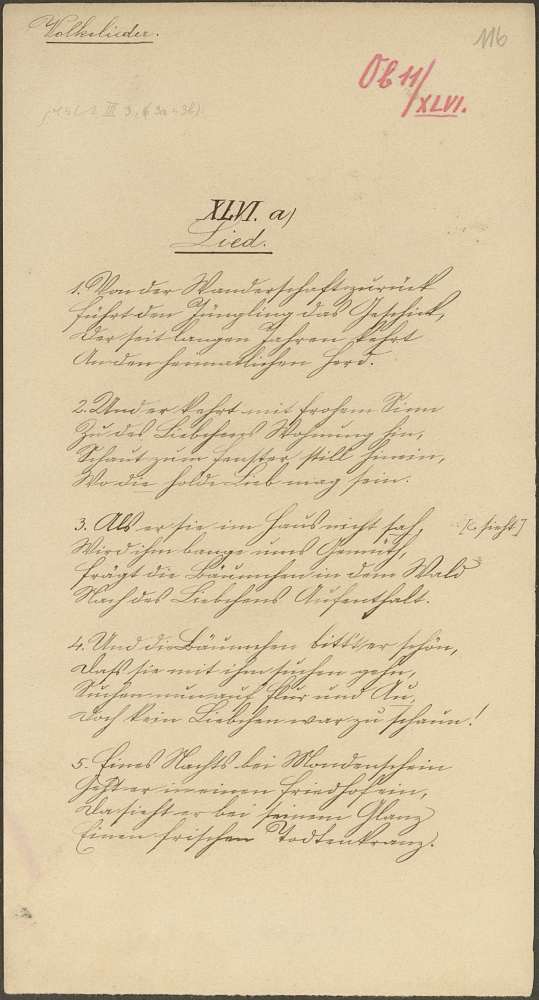 Volkslieder.
116
Ob 11/
XLVI.
XLVI. a)
Lied.
1. Von der Wanderschaft zurück
Führt den Jüngling das Geschick,
Der seit langen Jahren kehrt
An den heimatlichen Herd.
2. Und er kehrt mit frohem Sinn
Zu des Liebchens Wohnung hin,
Schaut zum Fenster still hinein,
Wo die holde Lieb mag sein.
3. Als er sie im Haus nicht sah, [c. sieht]
Wird ihm bange ums Gemüth,
Frägt die Bäumchen in dem Wald
Nach des Liebchens Aufenthalt.
4. Und die Bäumchen bittet er schön,
Dass sie mit ihm suchen gehn,
Suchen nun auf Flur und Au,
Doch kein Liebchen war zu schaun!
5. Eines Nachts bei Mondenschein
Geht er in einen Friedhof ein,
Da sieht er bei seinem Glanz
Einen frischen Todtenkranz.